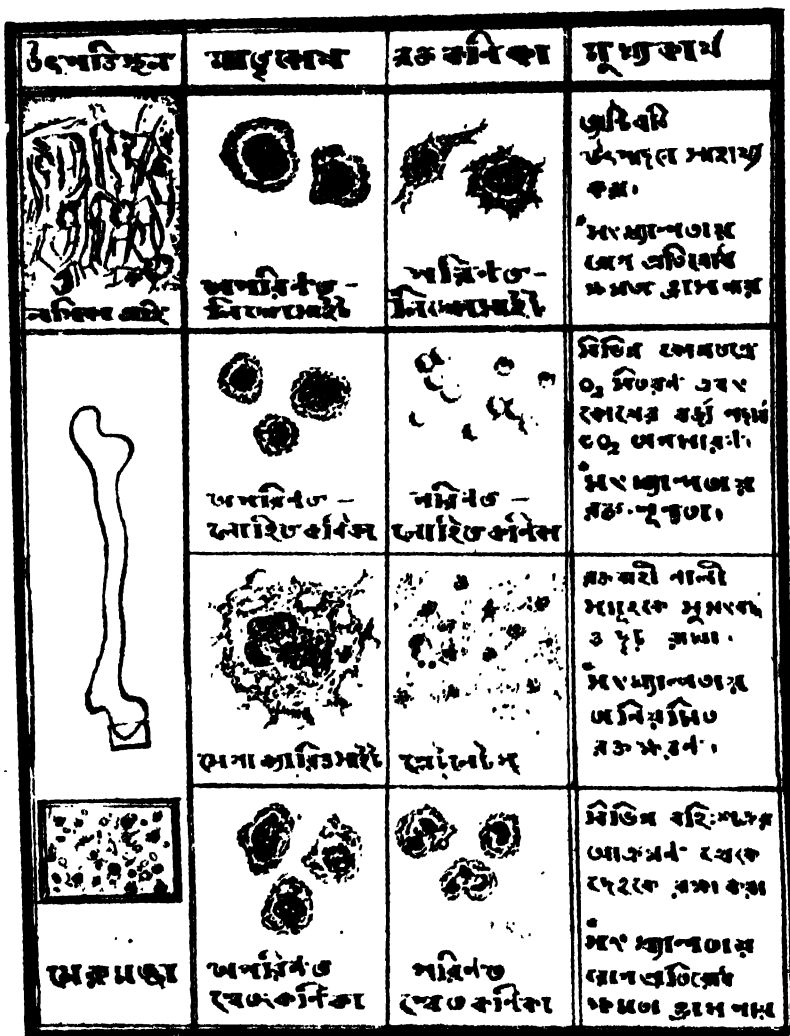 উৎপত্তিস্থল
মাতৃকোষ
রক্ত কণিকা
মূখ্যকার্য
লসিকা গ্রন্থি
অপরিণত -
লিম্ফোসাইট
পরিণত -
লিম্ফোসাইট
এ্যান্টিবডি
উৎপাদনে সাহায্য
করা।
*সংখ্যাল্পতায়
রোগ প্রতিরোধ
ক্ষমতা হ্রাস পায়
অপরিণত -
লোহিত কণিকা
পরিণত -
লোহিত কণিকা
বিভিন্ন কোষতন্ত্রে
O₂ বিতরণ এবং
কোষের বর্জ্য পদার্থ
CO₂ অপসারণ।
*সংখ্যাল্পতায়
রক্ত-শূণ্যতা।
মেগাক্যারিওসাইট
প্লেটলেটস্
রক্তবাহী নালী
সমূহকে সুসংবদ্ধ
ও দৃঢ় রাখা।
*সংখ্যাল্পতায়
অনিয়মিত
রক্তক্ষরণ।
মেরুমজ্জা
অপরিণত
শ্বেতকণিকা
পরিণত
শ্বেত কণিকা
বিভিন্ন বহিঃশত্রুর
আক্রমণ থেকে
দেহকে রক্ষা করা
*সংখ্যাল্পতায়
রোগপ্রতিরোধ
ক্ষমতা হ্রাস পায়